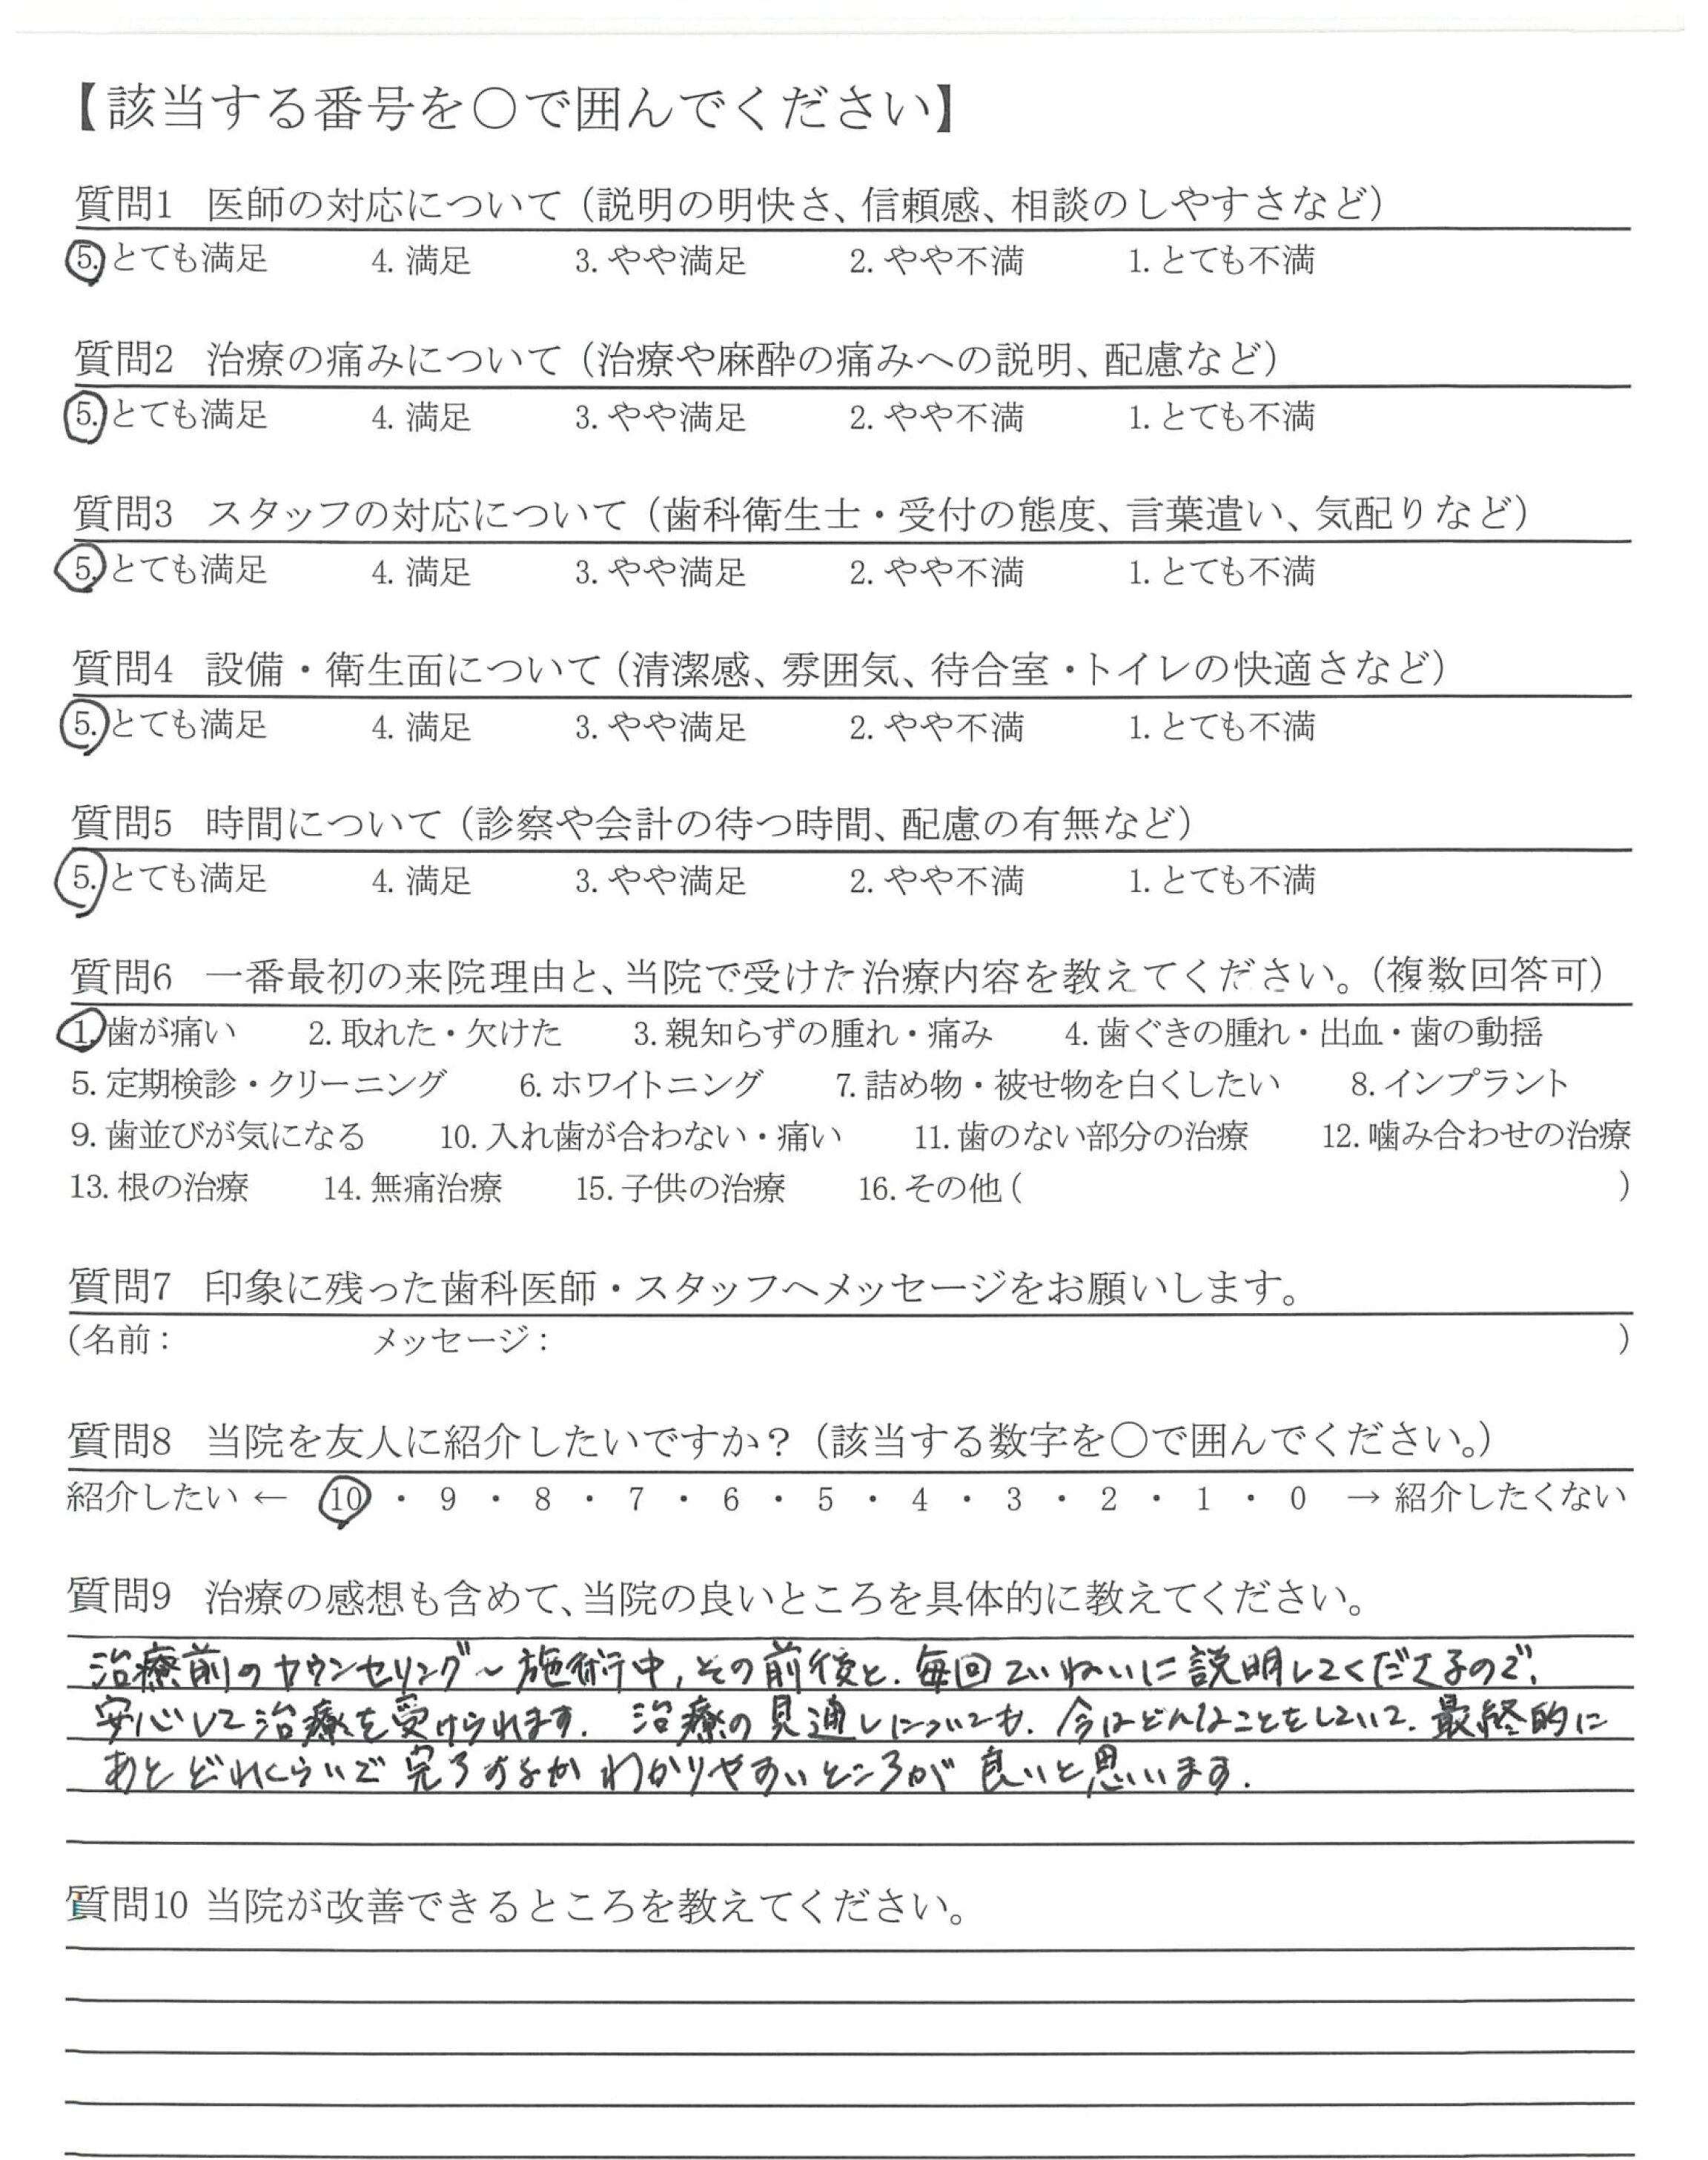 【該当する番号を○で囲んでください】
質問1 医師の対応について（説明の明快さ、信頼感、相談のしやすさなど）
5. とても満足 4. 満足 3. やや満足 2. やや不満 1. とても不満
質問2 治療の痛みについて（治療や麻酔の痛みへの説明、配慮など）
5. とても満足 4. 満足 3. やや満足 2. やや不満 1. とても不満
質問3 スタッフの対応について（歯科衛生士・受付の態度、言葉遣い、気配りなど）
5. とても満足 4. 満足 3. やや満足 2. やや不満 1. とても不満
質問4 設備・衛生面について（清潔感、雰囲気、待合室・トイレの快適さなど）
5. とても満足 4. 満足 3. やや満足 2. やや不満 1. とても不満
質問5 時間について（診察や会計の待つ時間、配慮の有無など）
5. とても満足 4. 満足 3. やや満足 2. やや不満 1. とても不満
質問6 一番最初の来院理由と、当院で受けた治療内容を教えてください。（複数回答可）
1. 歯が痛い 2. 取れた・欠けた 3. 親知らずの腫れ・痛み 4. 歯ぐきの腫れ・出血・歯の動揺
5. 定期検診・クリーニング 6. ホワイトニング 7. 詰め物・被せ物を白くしたい 8. インプラント
9. 歯並びが気になる 10. 入れ歯が合わない・痛い 11. 歯のない部分の治療 12. 噛み合わせの治療
13. 根の治療 14. 無痛治療 15. 子供の治療 16. その他（ ）
質問7 印象に残った歯科医師・スタッフへメッセージをお願いします。
（名前： メッセージ： ）
質問8 当院を友人に紹介したいですか？（該当する数字を○で囲んでください。）
紹介したい ← 10 ・ 9 ・ 8 ・ 7 ・ 6 ・ 5 ・ 4 ・ 3 ・ 2 ・ 1 ・ 0 → 紹介したくない
質問9 治療の感想も含めて、当院の良いところを具体的に教えてください。
治療前のカウンセリング～施術中，その前後と，毎回ていねいに説明してくださるので，
安心して治療を受けられます．治療の見通しについても，今はどんなことをしていて，最終的に
あとどれくらいで完了するかわかりやすいところが良いと思います．
質問10 当院が改善できるところを教えてください。